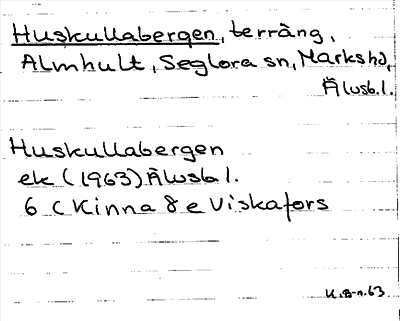 Huskullabergen, terräng,
Almhult, Seglora sn, Marks hd,
Älvsb. l.
Huskullabergen
ek (1963) Älvsb l.
6 C Kinna 8 e Viskafors
K.B-n.63